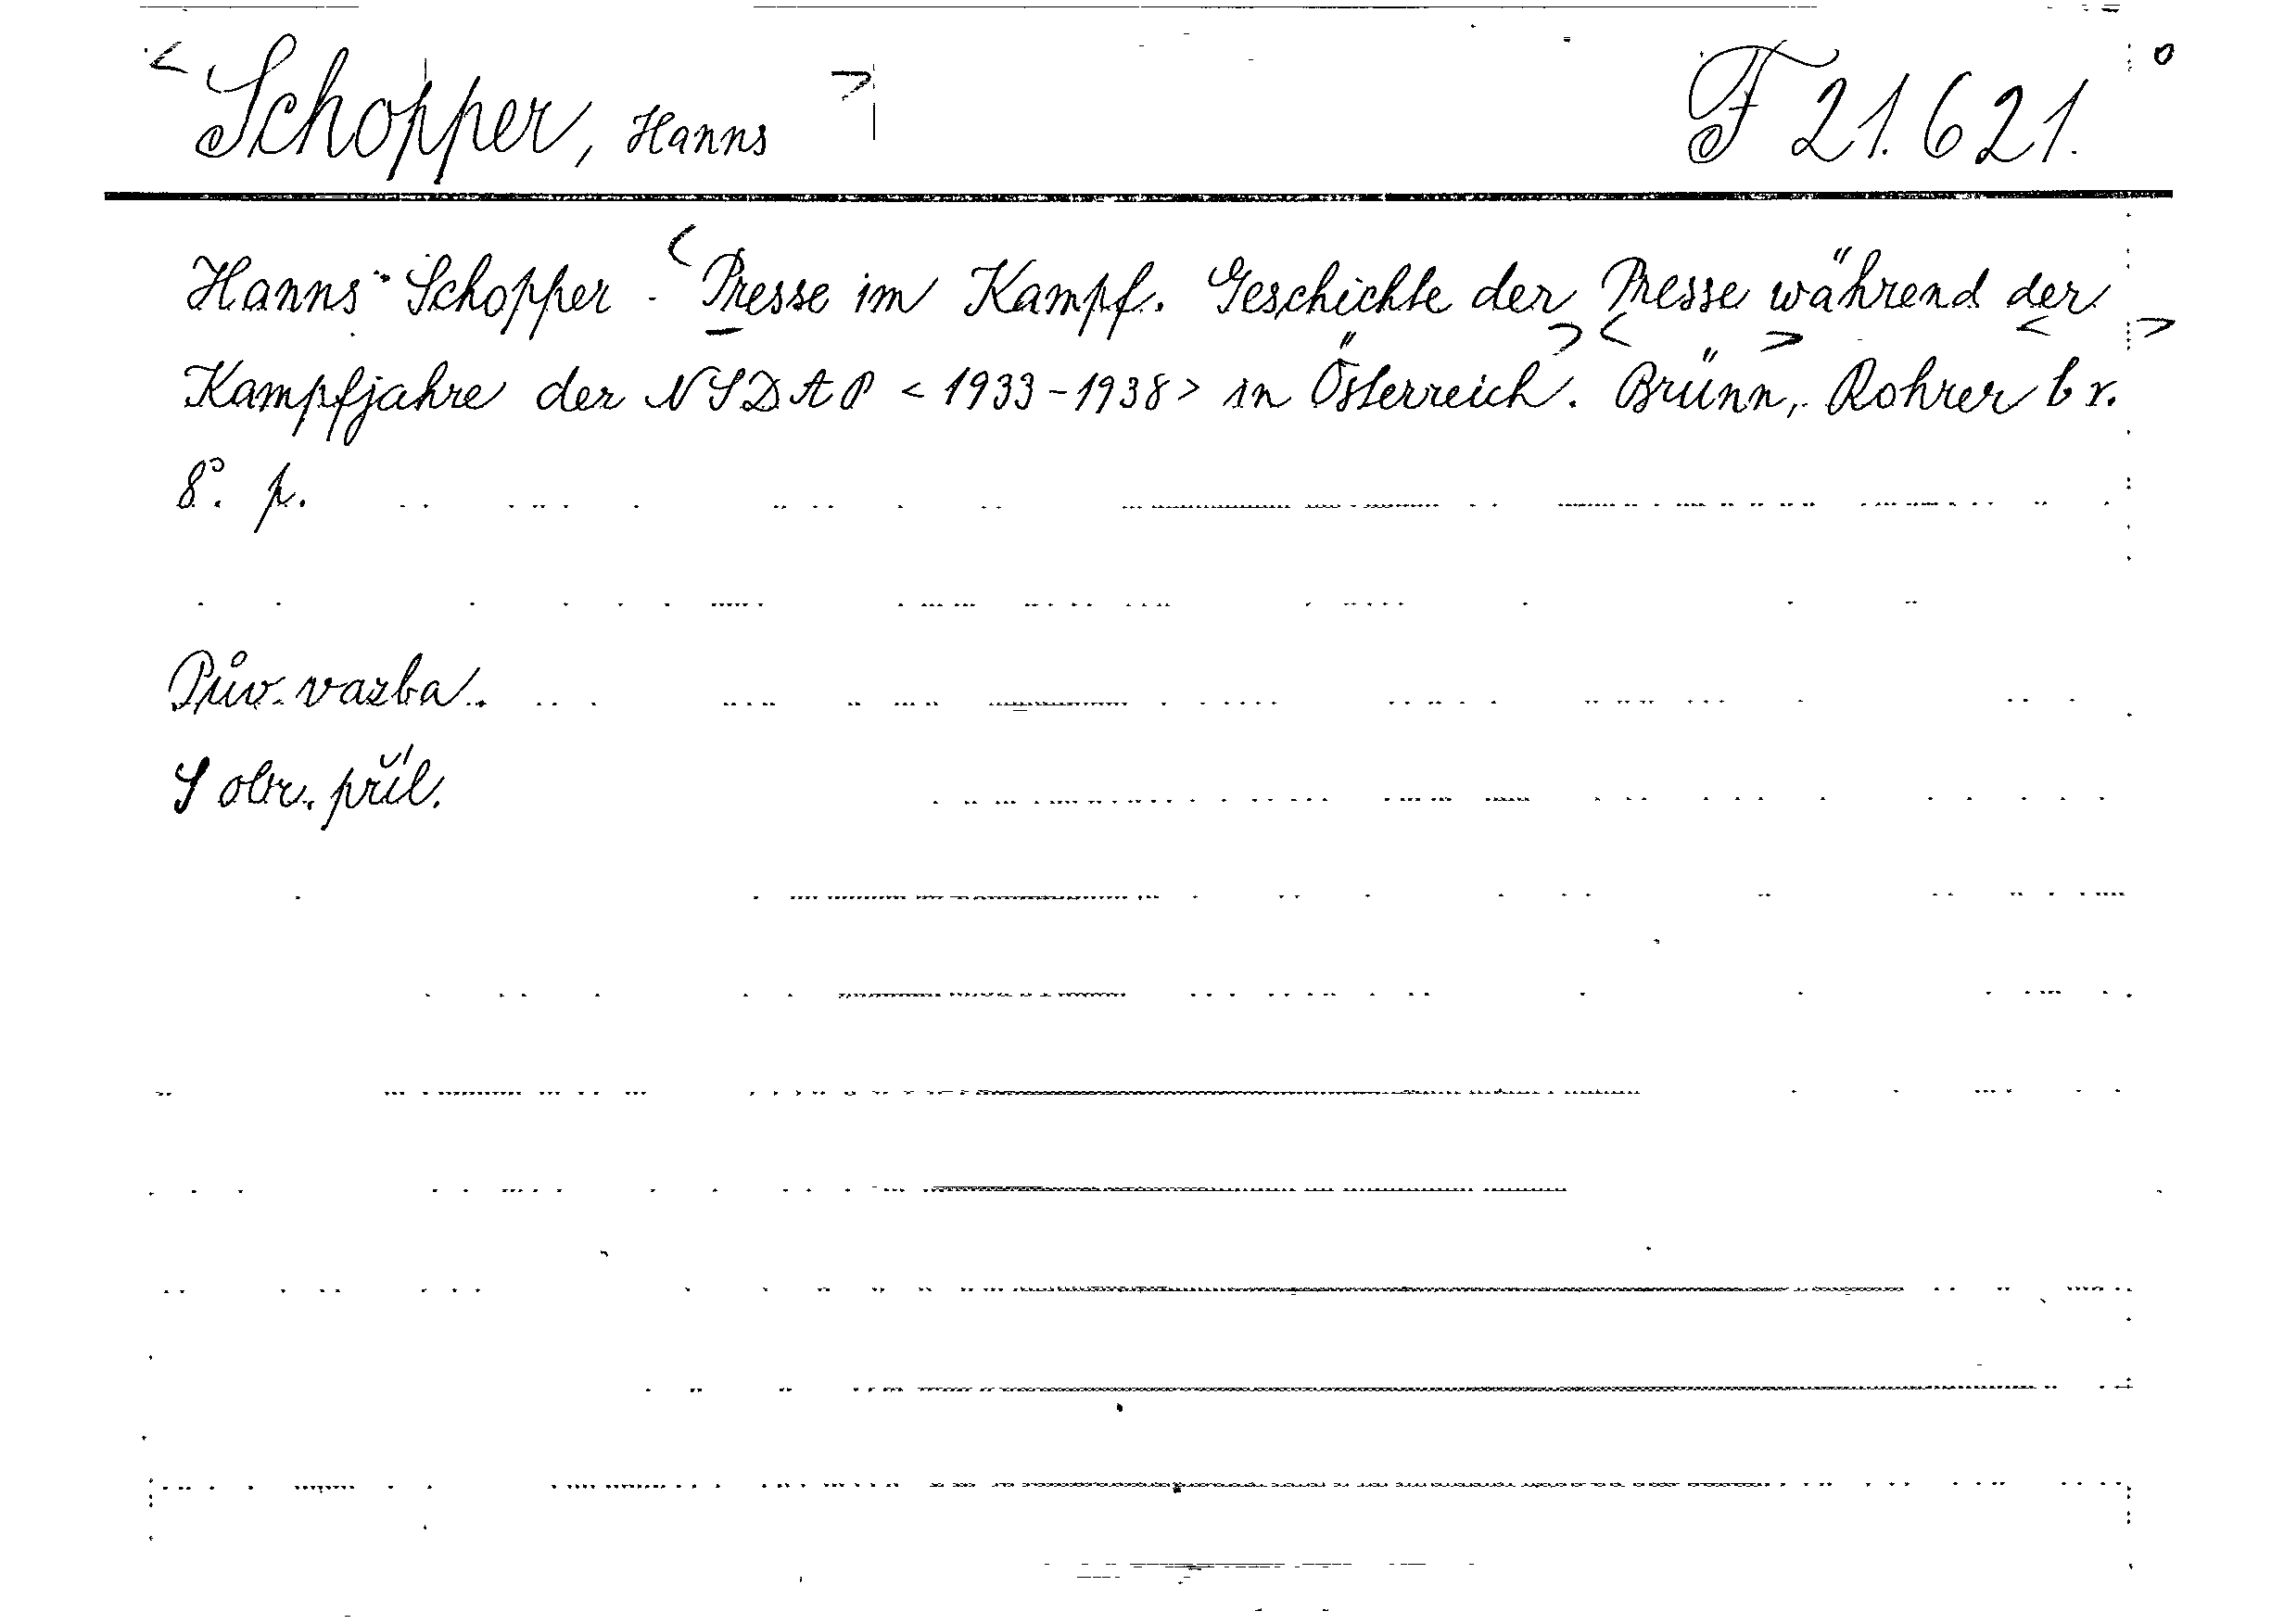 < Schopper, Hanns > F 21.621.
Hanns Schopper - < Presse im Kampf. Geschichte der Presse während der
Kampfjahre der NSDAP < 1933-1938 > in Österreich >. < Brünn, > Rohrer < b r. >
8°. p.
Pův. vazba.
S obr. příl.